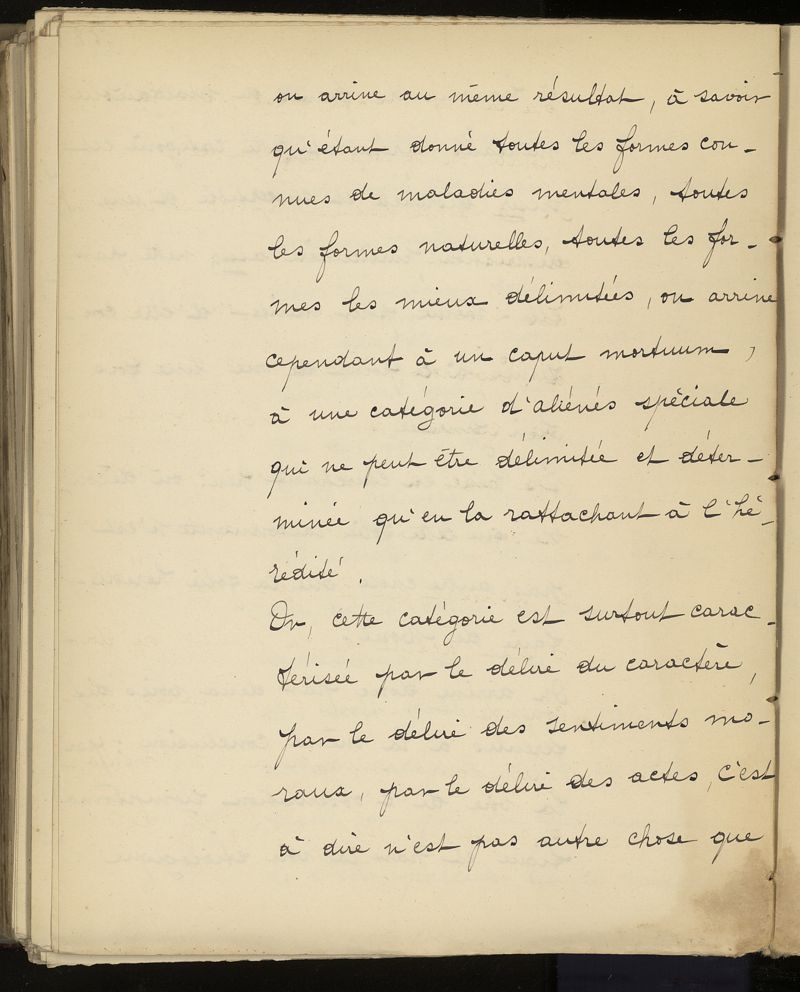 on arrive au même résultat, à savoir
qu'étant donné toutes les formes con-
nues de maladies mentales, toutes
les formes naturelles, toutes les for-
mes les mieux délimitées, on arrive
cependant à un caput mortuum,
à une catégorie d'aliénés spéciale
qui ne peut être délimitée et déter-
minée qu'en la rattachant à l'hé-
rédité.
Or, cette catégorie est surtout carac-
térisée par le délire du caractère,
par le délire des sentiments mo-
raux, par le délire des actes, c'est
à dire n'est pas autre chose que